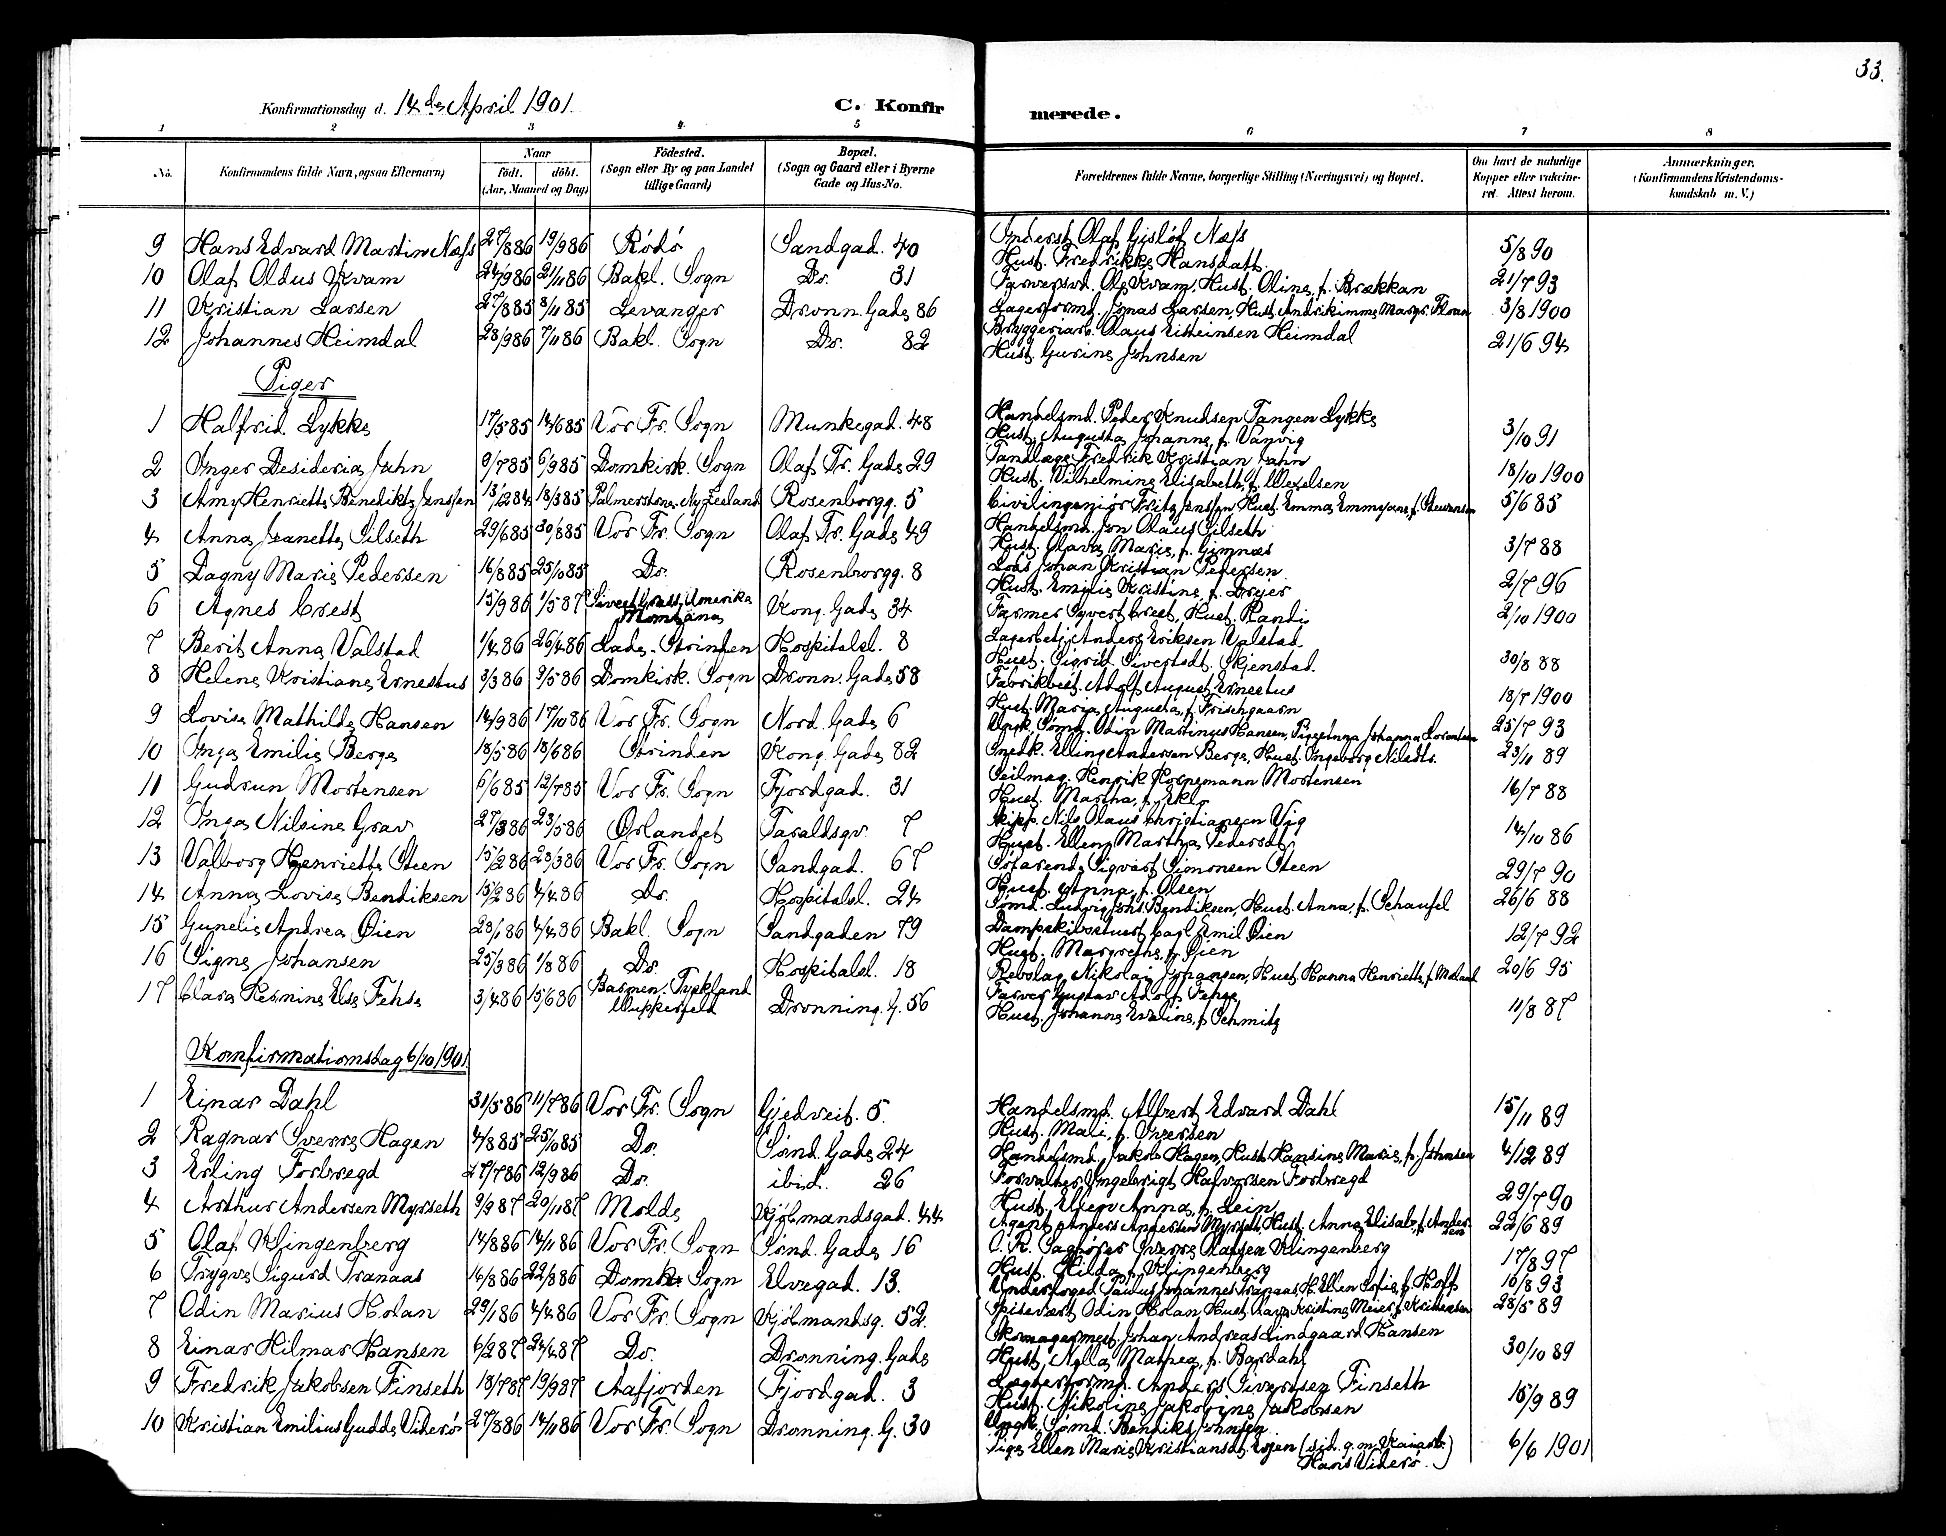 33.
Konfirmationsdag d. 14de April 1901. C. Konfirmerede.
1 2 3 4 5 6 7 8
No. Konfirmandens fulde Navn, ogsaa Efternavn) Naar født. døbt. (Aar, Maaned og Dag) Fødested. (Sogn eller By og paa Landet tillige Gaard) Bopæl. (Sogn og Gaard eller i Byerne Gade og Hus-No. Forældrenes fulde Navne, borgerlige Stilling (Næringsvei) og Bopæl. Om havt de naturlige Kopper eller vaccineret. Attest herom. Anmærkninger. (Konfirmandens Kristendomskundskab m. V.)
9 Hans Edvard Martin Næss 27/8 86 19/9 86 Rødø Sandgad. 40 Inderst Olaf Gisløf Næss Hust. Fredrikke Hansdatt. 5/8 90
10 Olaf Oldus Kvam 24/9 86 21/11 86 Bakl. Sogn Do. 31 Farversvd. Ole Kvam, Hust. Oline, f. Brækkan 21/7 93
11 Kristian Larsen 27/8 85 8/11 85 Levanger Dronn. Gade 86 Lagerformd. Jonas Larsen, Hust. Andrikimme Margr. Floan 3/8 1900
12 Johannes Heimdal 28/9 86 7/11 86 Bakl. Sogn Do. 82 Bryggeriarb. Olaus Eisteinsen Heimdal Hust. Gurine Johnsen 21/6 94
Piger
1 Halfrid Lykke 17/5 85 14/6 85 Vor Fr. Sogn Munkegad. 48 Handelsmd. Peder Knudsen Tangen Lykke Hust. Augusta Johanne, f. Vanvig 3/10 91
2 Inger Desideria Jahn 9/7 85 6/9 85 Domkirk. Sogn Olaf Tr. Gade 29 Tandlæge Fredrik Kristian Jahn Hust. Vilhelmine Elisabeth, f. Wexelsen 18/10 1900
3 Amy Henriette Benedikte Jenssen 13/12 84 18/3 85 Palmerstone, Ny Zeeland Rosenborgg. 5 Civilingeniør Fritz Jenssen, Hust. Emma Emmyane, f. 5/6 85
4 Anna Jeanette Silseth 29/6 85 30/8 85 Vor Fr. Sogn Olaf Tr. Gade 49 Handelsmd. Jon Olaus Silseth Hust. Olava Marie, f. Gimnæs 3/7 88
5 Dagny Marie Pedersen 16/8 85 25/10 85 Do. Rosenborgg. 8 Lods Johan Kristian Pedersen Hust. Emilie Kristine, f. Dreier 2/7 96
6 Agnes Crest 15/9 86 1/5 87 Sweet Grass, Amerika Montana Kong. Gade 34 Farmer Syvert Crest, Hust. Randi 2/10 1900
7 Berit Anna Valstad 1/4 86 26/4 86 Lade, Strinden Hospitalsl. 8 Lagerbetj. Anders Eriksen Valstad Hust. Sigrid Sivertsdt. Skjenstad. 30/8 88
8 Helene Kristiane Ernestus 3/3 86 9/5 86 Domkirk. Sogn Dronn. Gade 58 Fabrikbest. Adolf August Ernestus Hust. Maria Augusta, f. Frischgaarn 18/7 1900
9 Lovise Mathilde Hansen 14/9 86 17/10 86 Vor Fr. Sogn Nord. Gade 6 Ungk. Sømd. Odin Martinus Hansen, Pige Inga Johanna Lorentsen 25/7 93
10 Inga Emilie Berge 18/5 86 18/6 86 Strinden Kong. Gade 82 Snedk. Elling Andersen Berge, Hust. Ingeborg Nilsdtr. 23/11 89
11 Gudrun Mortensen 6/6 85 12/7 85 Vor Fr. Sogn Fjordgad. 31 Seilmag. Henrik Mortensen Hust. Martha, f. Eklo 16/7 88
12 Inga Nilsine Grav 27/3 86 23/5 86 Ørlandet Taraldsgv. 7 Skipp. Nils Olaus Christiansen Vig Hust. Ellen Martha Pedersdt. 14/10 86
13 Valborg Henriette Steen 15/2 86 28/3 86 Vor Fr. Sogn Sandgad. 67 Søfarende Sigvart Simonsen Steen Hust. Anna, f. Olsen 29/7 90
14 Anna Lovise Bendiksen 15/2 86 4/4 86 Do. Hospitalsl. 24 Sømd. Ludvig Johs. Bendiksen, Hust. Anna, f. Schaufel 26/6 88
15 Gunelie Andrea Øien 28/1 86 4/4 86 Bakl. Sogn Sandgaden 79 Dampskibsstuert Carl Emil Øien Hust. Margrethe, f. Øien 12/7 92
16 Signe Johansen 25/3 86 1/8 86 Do. Hospitalsl. 18 Rebslag. Nikolai Johansen, Hust. Hanna Henriette, f. Moland 20/6 95
17 Clara Hermine Else Fehse 3/4 86 15/6 86 Barmen, Tyskland Wupperfeld Dronning. g. 56 Farver Gustav Adolf Fehse Hust. Johanne Eveline, f. Schmitz 11/8 87
Konfirmationsdag 6/10 1901.
1 Einar Dahl 31/5 86 11/7 86 Vor Fr. Sogn Gjedveit. 5. Handelsmd. Albert Edvard Dahl Hust. Mali, f. Iversen 15/11 89
2 Ragnar Sverre Hagen 4/8 85 25/10 85 Do. Sønd. Gade 24 Handelsmd. Jakob Hagen, Hust. Hansine Marie, f. Johnsen 4/12 89
3 Erling Forbregd 27/7 86 12/9 86 Do. ibid. 26 Forvalter Ingebrigt Halvorsen Forbregd Hust. Ellen Anna, f. Lein 29/7 90
4 Arthur Andersen Myrseth 9/9 87 20/11 87 Molde Kjøbmandsgad. 44 Agent Anders Andersen Myrseth, Hust. Anna Elisab., f. Andersen 22/6 89
5 Olaf Klingenberg 14/8 86 14/11 86 Vor Fr. Sogn Sønd. Gade 16 O. R. Sagfører Sverre Olafsen Klingenberg Hust. Hilda, f. Klingenberg 17/8 97
6 Trygve Sigurd Tranaas 14/8 86 22/8 86 Domk. Sogn Elvegad. 13. Underfoged Paulus Johannes Tranaas, H. Ellen Sofie, f. Hoff 16/8 93
7 Odin Marius Holan 29/1 86 4/4 86 Vor Fr. Sogn Kjøbmandsg. 52. Spisevært Odin Holan Hust. Kristine Meier, f. Kristensen 28/5 89
8 Einar Hilmar Hansen 6/2 87 24/4 87 Do. Dronning. Gade Skomagermest. Johan Andreas Lindgaard Hansen Hust. Nella Mathea, f. Bardahl 30/10 89
9 Fredrik Jakobsen Finseth 18/7 87 19/9 87 Aafjorden Fjordgad. 3 Lægterformd. Anders Sivertsen Finseth Hust. Nikoline Jakobine Jakobsen 15/9 89
10 Kristian Emilius Gudde Viderø 27/8 86 14/11 86 Vor Fr. Sogn Dronning. G. 30 Ungk. Sømd. Bendik Johnsen Pige Ellen Marie Kristiansdt. Evjen (sid. g. m. Kaiarb. Hans Viderø.) 6/6 1901